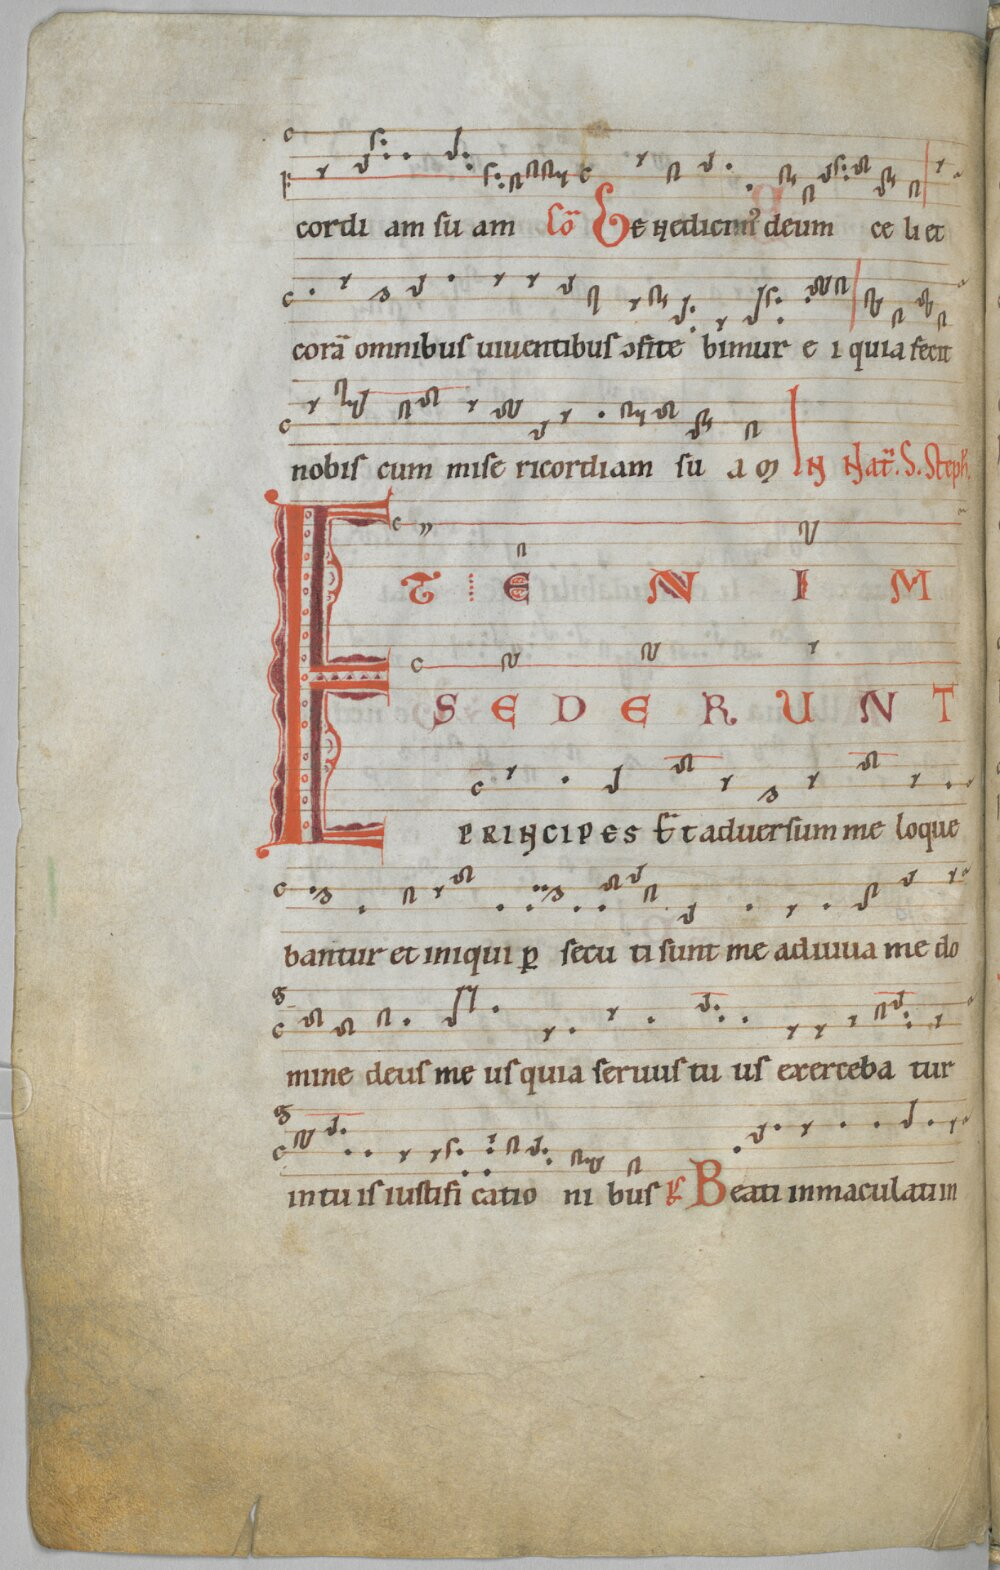 cordi am su am Cō Benedicim⁹ deum ce li et
corā omnibus uiuentibus ↄfite bimur e i quia fecit
nobis cum mise ricordiam su a m IN Nat̄. S. Steph.
ETENIM
SEDERUNT
PRINCIPES Et aduersum me loque
bantur et iniqui ꝑ secu ti sunt me adiuua me do
mine deus me us quia seruus tu us exerceba tur
in tu is iustifi catio ni bus ℣ Beati inmaculati in